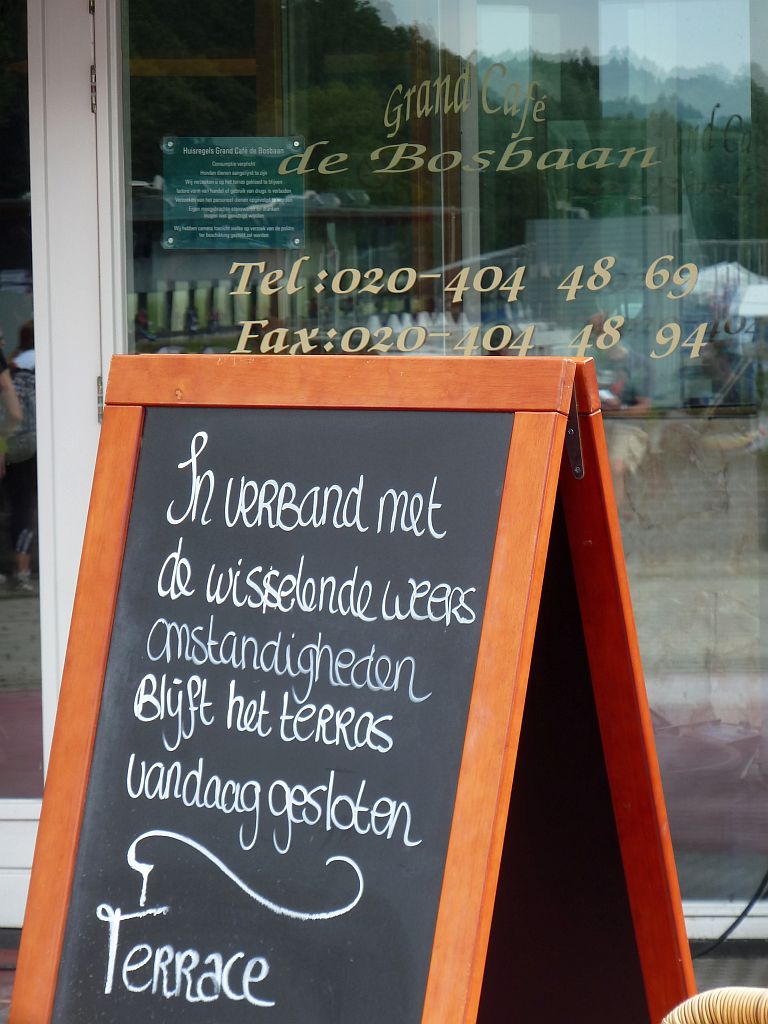 Grand Café
de Bosbaan
Huisregels Grand Café de Bosbaan
Consumptie verplicht
Honden dienen aangelijnd te zijn
Wij verzoeken u op het terras gekleed te blijven
Iedere vorm van handel of gebruik van drugs is verboden
Verzoeken van het personeel dienen opgevolgd te worden
Eigen meegebrachte etenswaren en dranken
mogen niet genuttigd worden
Wij hebben camera toezicht welke op verzoek van de politie
ter beschikking gesteld zal worden
Tel:020-404 48 69
Fax:020-404 48 94
In verband met
de wisselende weers
omstandigheden
Blijft het terras
vandaag gesloten
Terrace